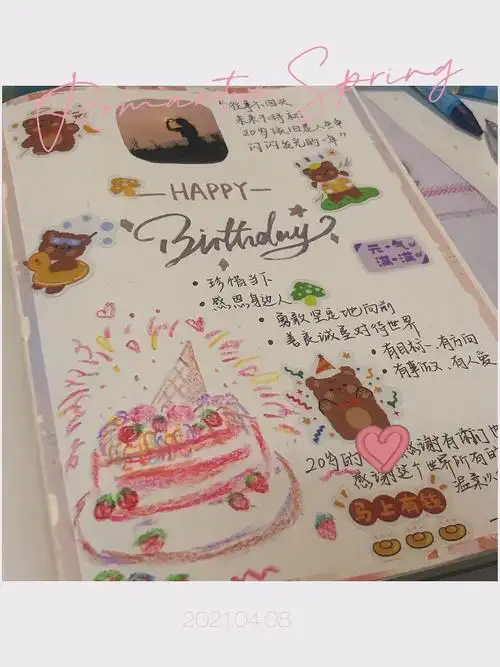 Romantic Spring
"往事不回头
未来不将就
20岁依旧是人生中
闪闪发光的一年"
—HAPPY—
Birthday
元·气
满·满
• 珍惜当下
• 感恩身边人
• 勇敢坚定地向前
• 善良诚恳对待世界
• 有目标、有方向
• 有事做、有人爱
20岁的 感谢有你们
感谢这个世界所有的
温柔
马上有钱
2021.04.08